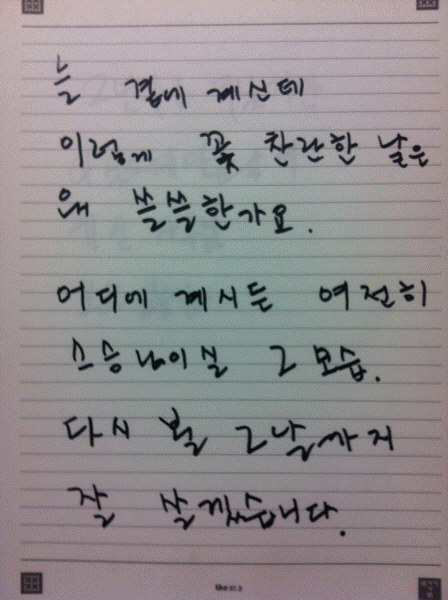 늘 곁에 계신데
이렇게 꽃 찬란한 날은
왜 쓸쓸한가요.
어디에 계시든 여전히
스승님이실 그 모습.
다시 뵐 그날까지
잘 살겠습니다.